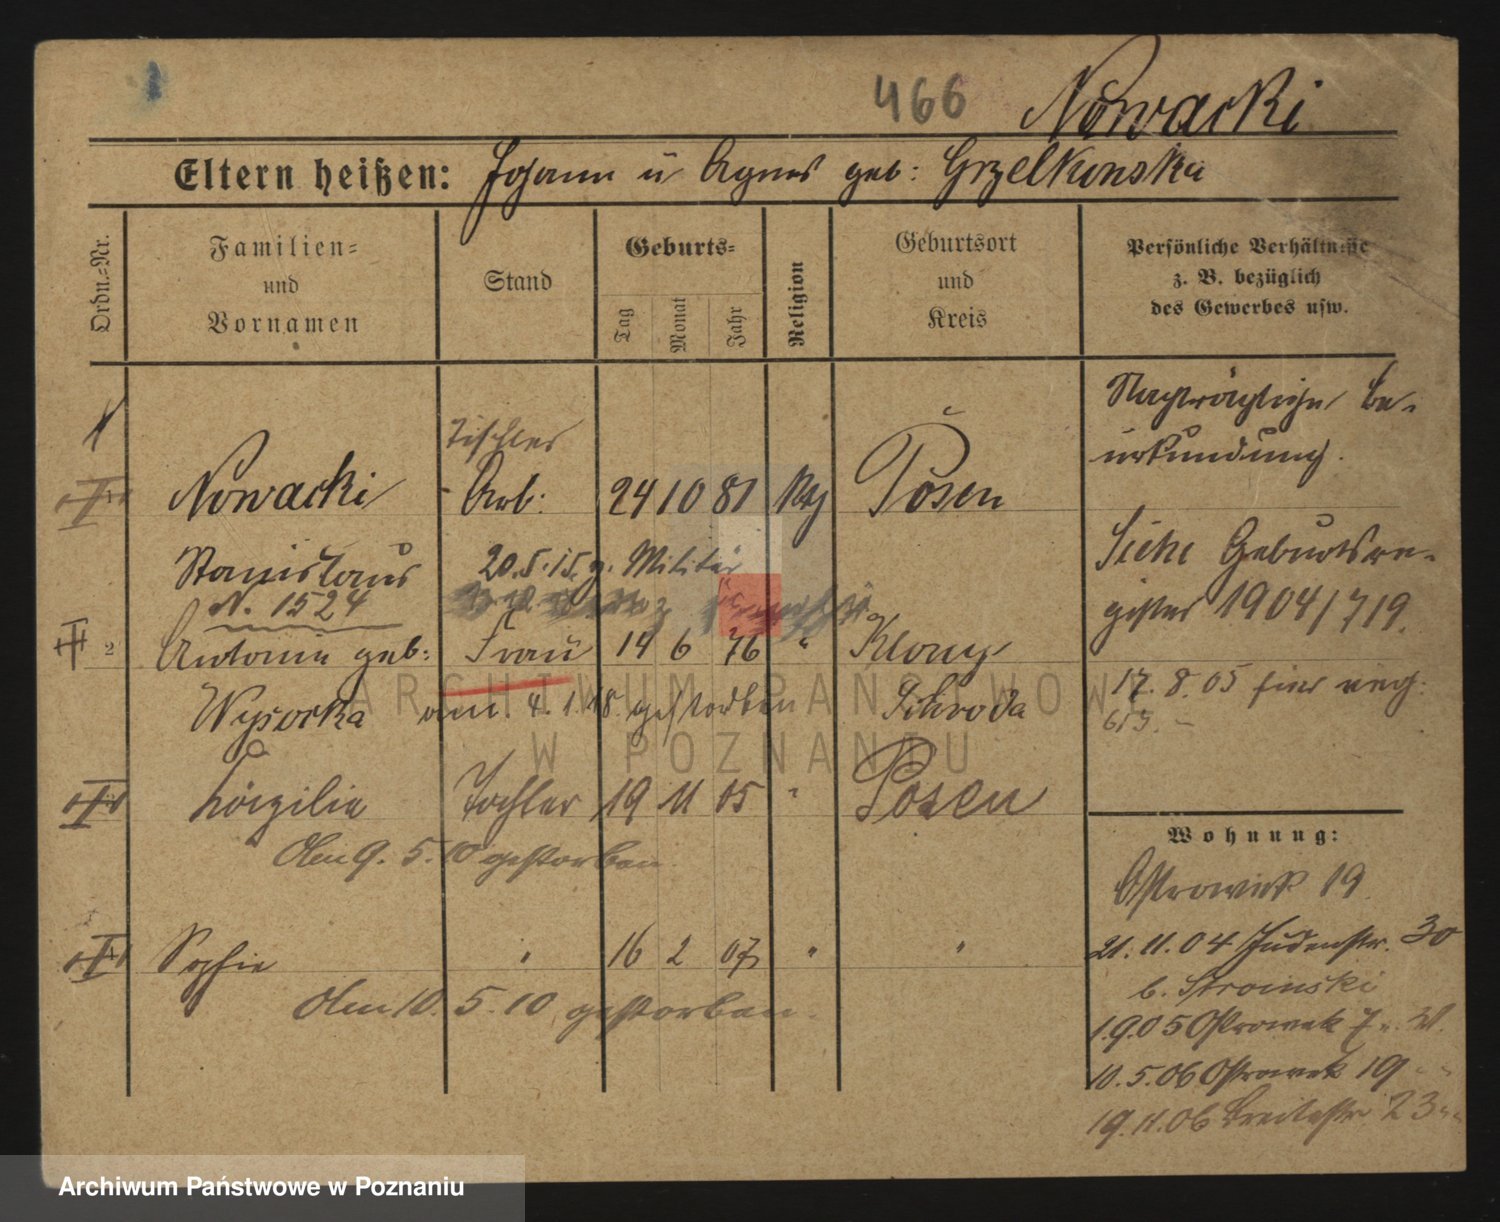 466 Nowacki
Eltern heißen: Johann u Agnes geb: Grzelkonska
Ordn.=Nr.
Familien=
und
Vornamen
Stand
Geburts=
Tag
Monat
Jahr
Religion
Geburtsort
und
Kreis
Persönliche Verhältnisse
z. B. bezüglich
des Gewerbes usw.
Tischler
Nowacki Arb: 24 10 81 Posen
Stanislaus 20.5.15. z. Militär
N. 1524
2 Antonie geb: Frau 14 6 76 " Klony
Wysocka am 4.1.18 gestorben Schroda
Tochter 19 11 05 " Posen
Am 9. 5. 10 gestorben
Sophie " 16 2 07 " "
Am 10. 5. 10 gestorben.
Nachträgliche Be-
urkundung.
Siehe Geburtsre-
gister 1904/719.
17. 8. 05
Wohnung:
Ostrowek 19
21. 11. 04 Judenstr. 30
b. Stroinski
1.9.05 Ostrowek 7
10. 5. 06 Ostrowek 19
19. 11. 06 Breitestr. 23
ARCHIWUM PAŃSTWOWE
W POZNANIU
Archiwum Państwowe w Poznaniu